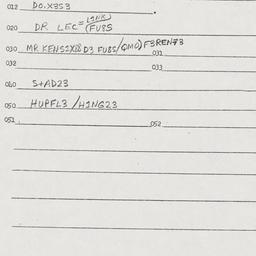 012 DO.X3S3
020 DR LEC= LINK (FU8S
030 MR KENS1X D3 FU8S/GMO) F3REN73
031
032
033
060 S+AD23
050 HUPFL3/H1NG23
051
052